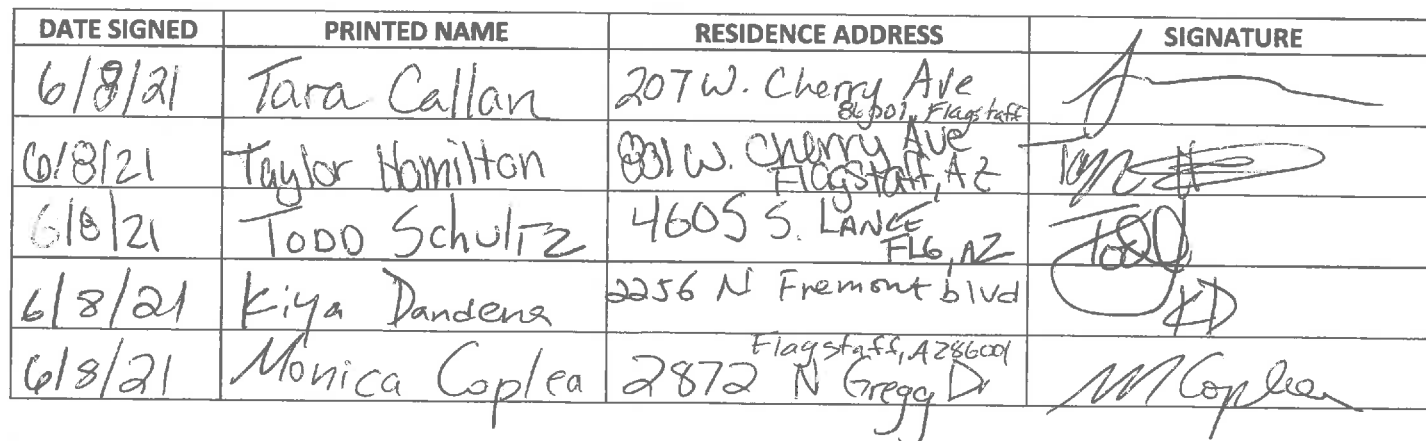 DATE SIGNED PRINTED NAME RESIDENCE ADDRESS SIGNATURE
6/8/21 Tara Callan 207 W. Cherry Ave
86001, Flagstaff
6/8/21 Taylor Hamilton 801 W. Cherry Ave Tay H
Flagstaff, AZ
6/8/21 TODD SchulTZ 4605 S. LANCE Todd
FLG, AZ
6/8/21 Kiya Dandena 2256 N Fremont blvd KD
Flagstaff, AZ 86001
6/8/21 Monica Coplea 2872 N Gregg Dr M Coplea